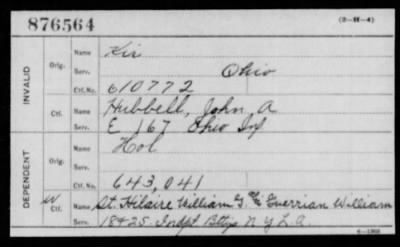 876564 (3—M—4)
INVALID
Orig.
Name Hir
Serv. Ohio
Ctf. No. 610772
Ctf.
Name Hubbell, John, A
Serv. E 167 Ohio Inf
DEPENDENT
Orig.
Name Hol
Serv.
Ctf. No. 643,041
W Ctf.
Name St. Hilaire William G. Guerrian William
Serv. 18 & 25 Indpt. Bttys N.Y.L.A.
6—1903